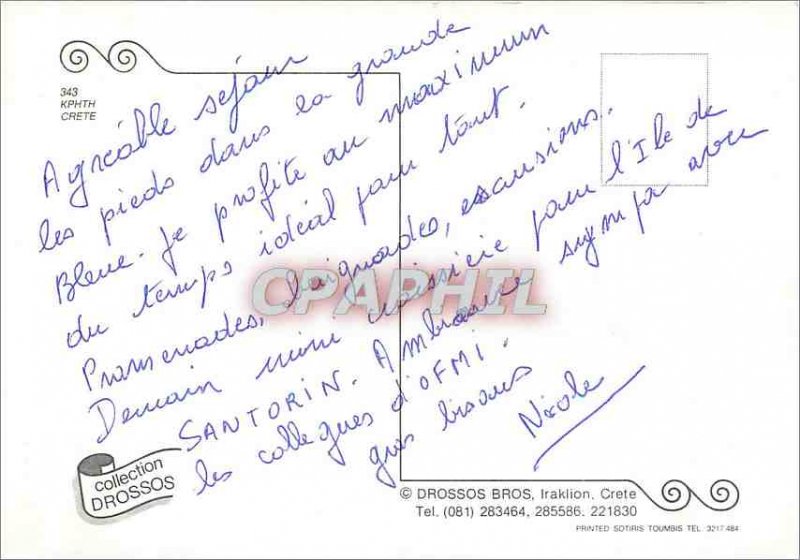 343
KPHTH
CRETE
Agréable séjour
les pieds dans la grande
Bleue. Je profite au maximum
du temps idéal pour tout.
Promenades, baignades, excursions.
Demain mini croisière pour l'Ile de
SANTORIN. Ambiance sympa avec
les collègues d'OFMI.
gros bisous
Nicole
CPAPHIL
collection
DROSSOS
© DROSSOS BROS, Iraklion, Crete
Tel. (081) 283464, 285586, 221830
PRINTED SOTIRIS TOUMBIS TEL. 3217.484